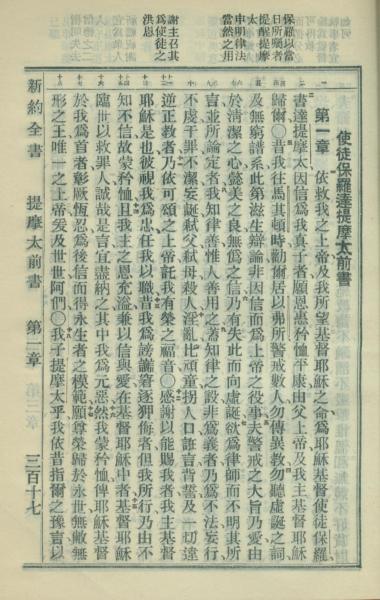 保羅以當
日所屬者
提醒提摩
太
申明律法
當然之用
謝主召其
為使徒之
洪恩
使徒保羅達提摩太前書
第一章
依救我之上帝及我所望基督耶穌之命為耶穌基督使徒保羅
書達提摩太因信為我真子者願恩惠矜恤平康由父上帝及我主基督耶穌
歸爾○昔我往馬其頓時勸爾居以弗所警戒數人勿傳異教勿聽虛誕之詞
及無窮譜系此第滋生辯論非因信而為上帝之役事夫警戒之大旨乃愛由
於清潔之心懿美之良無偽之信乃有失此而向虛誕欲為律師而不明其所
言並所論定者我知律善惟人善用之蓋知律之設非為義者乃為不法妄行
不虔干罪不潔妄誕弒父弒母殺人淫亂比頑童拐人口誑言背誓及一切達
逆正教者乃依可頌之上帝託我有榮之福音○感謝以能賜我者我主基督
耶穌是也彼視我為忠任我以職昔我為謗讟窘逐狎侮者但我所行乃由不
知不信故蒙矜恤且我主之恩充溢兼以信與愛在基督耶穌中者基督耶穌
臨世以救罪人誠哉是言宜盡納之其中我為元惡然我蒙矜恤俾耶穌基督
於我為首者彰厥恆忍為後信而得永生者之模範願尊榮歸於永世無敝無
形之王唯一之上帝爰及世世阿們○我子提摩太乎我依昔指爾之豫言以
新約全書
提摩太前書
第一章
三百十七